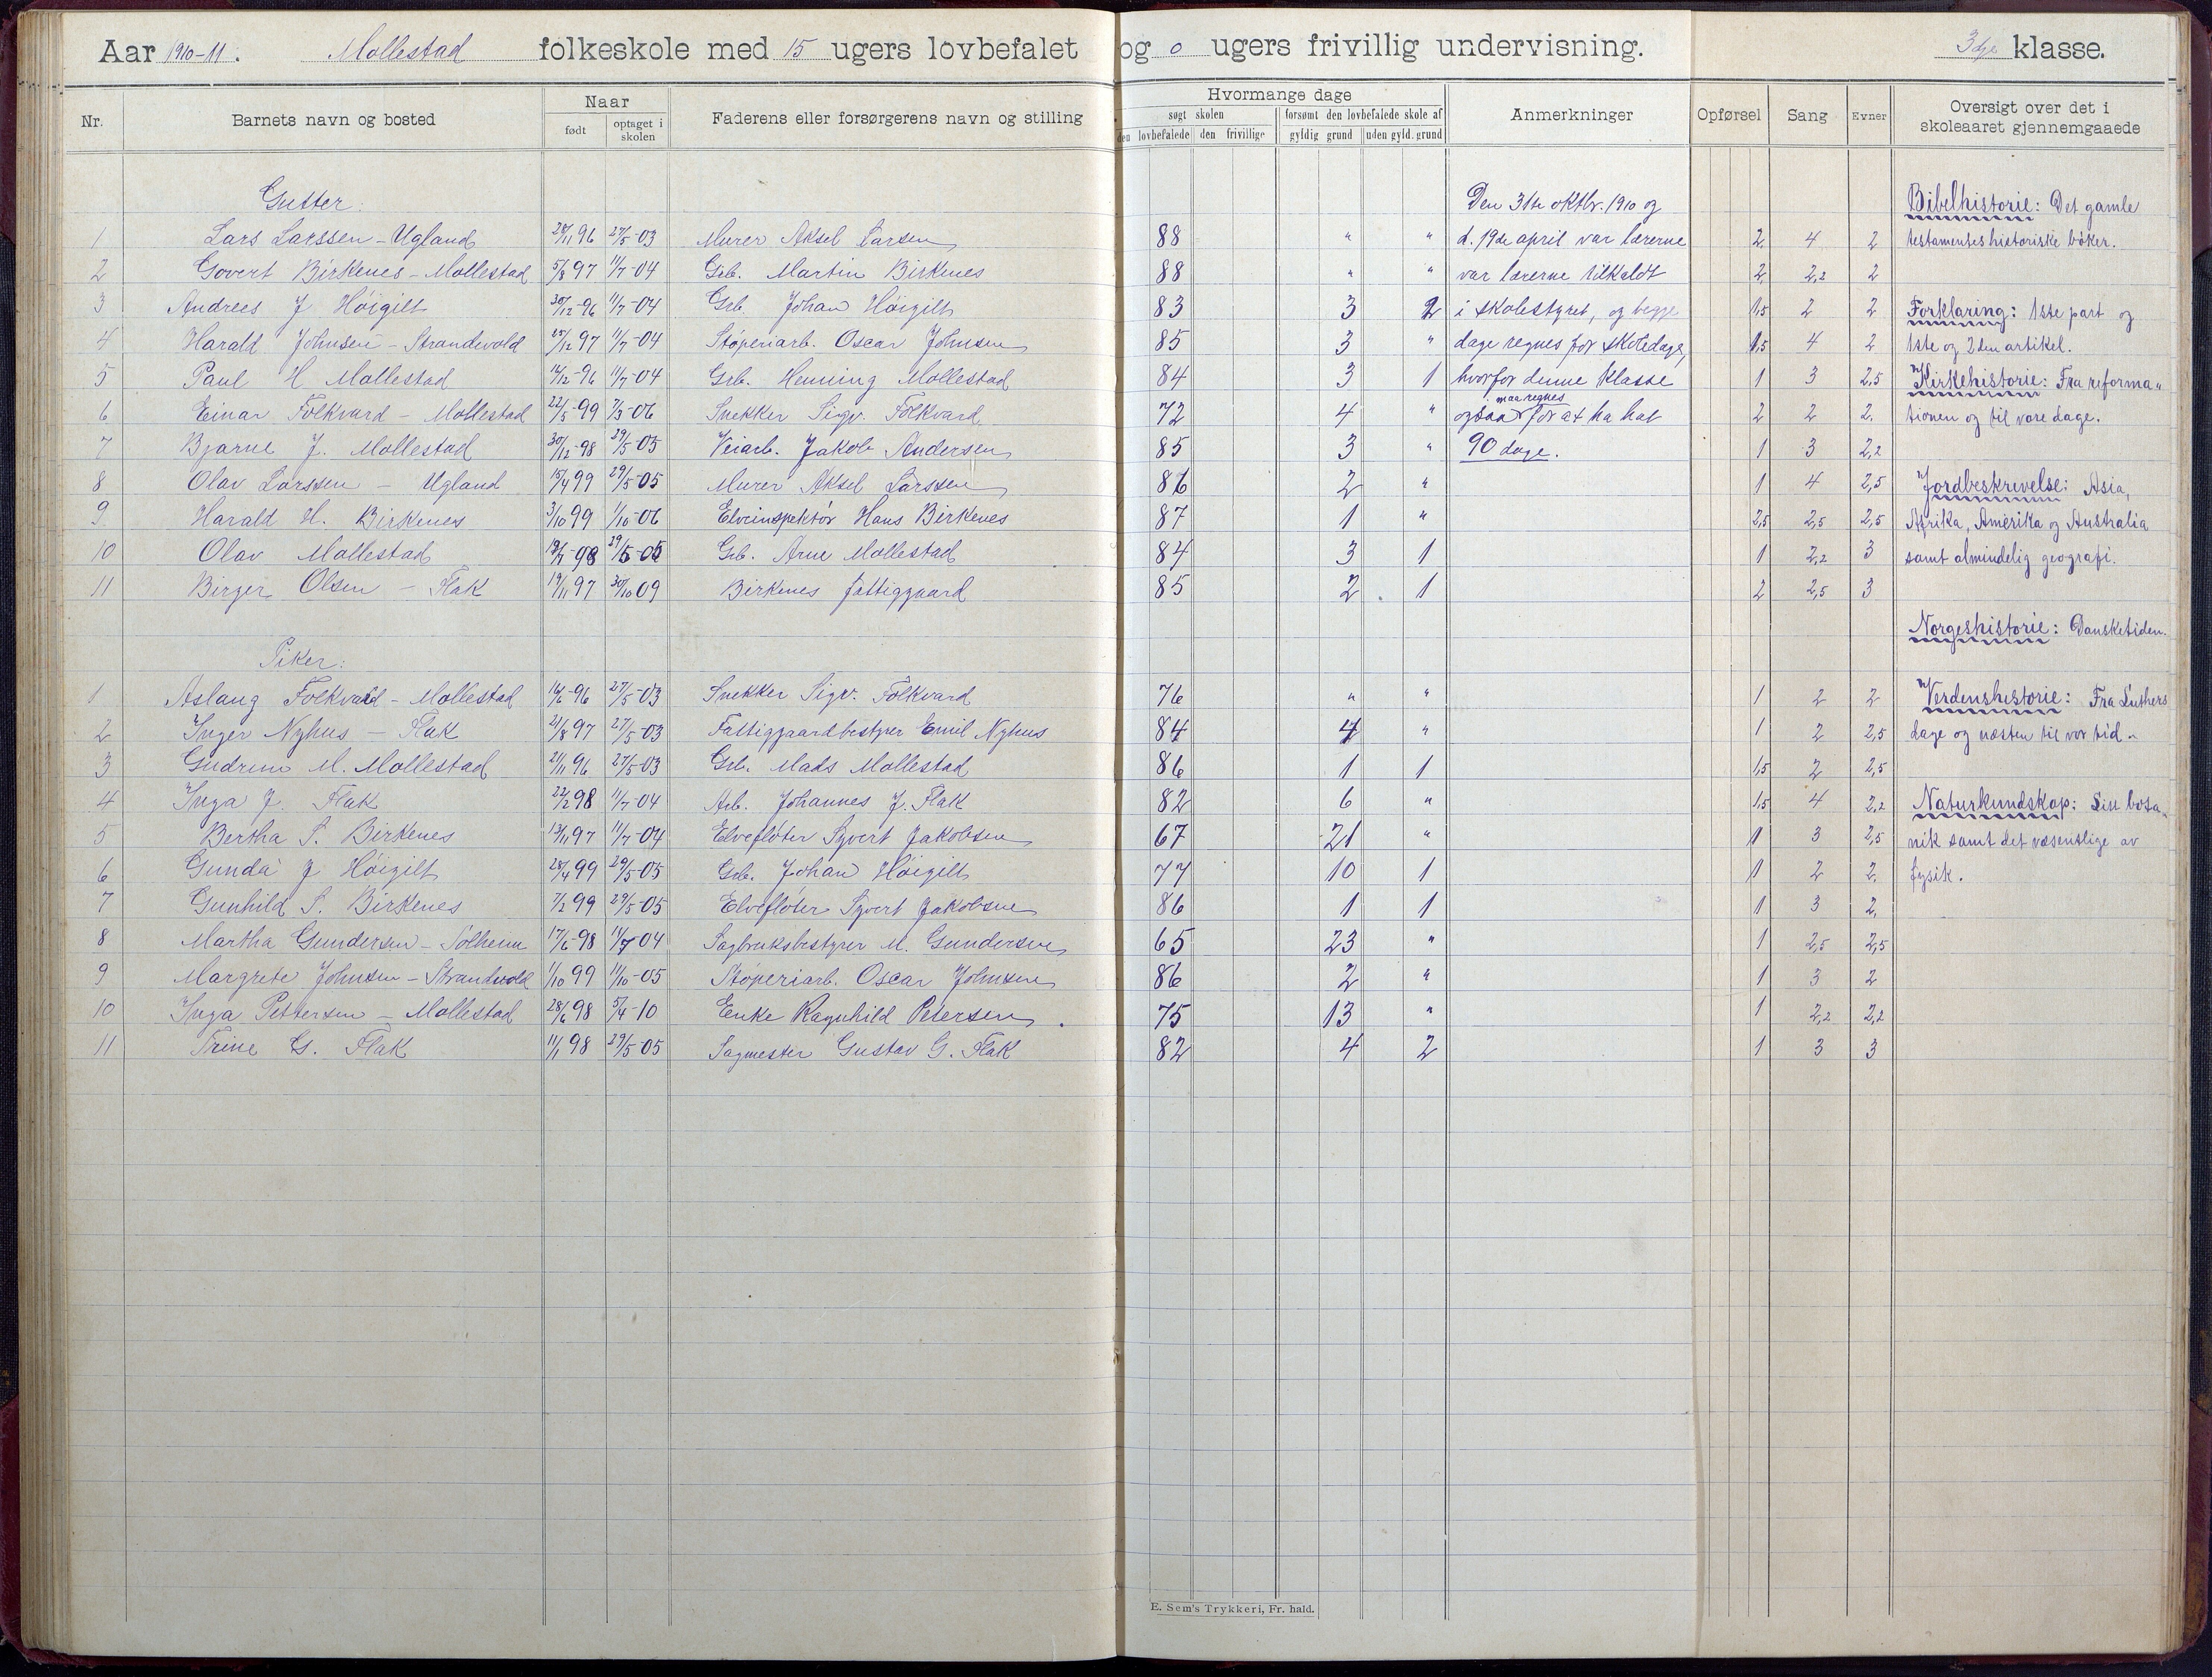 Aar 1910-11. Mollestad folkeskole med 15 ugers lovbefalet og 0 ugers frivillig undervisning. 3dje klasse.
Nr. Barnets navn og bosted Naar født optaget i skolen Faderens eller forsørgerens navn og stilling Hvormange dage søgt skolen den lovbefalede den frivillige forsømt den lovbefalede skole af gyldig grund uden gyld. grund Anmerkninger Opførsel Sang Evner Oversigt over det i skoleaaret gjennemgaaede
Gutter: Den 31te oktbr. 1910 og Bibelhistorie: Det gamle
1 Lars Larssen - Ugland 11 96 27/5-03 Murer Aksel Larsen 88 " " d. 19de april var lærerne 2 4 2 testamentes historiske bøker.
2 Govert Birkenes - Mollestad 5/8 97 11/7-04 Grb. Martin Birkenes 88 " " var lærerne tilkaldt 2 2,2 2
3 Andrees J Høigilt 30/12-96 11/7-04 Grb. Johan Høigilt 83 3 2 i skolestyret, og begge 1,5 2 2 Forklaring: 1ste part og
4 Harald Johnsen - Strandevold 25/12 97 11/7-04 Støperiarb. Oscar Johnsen 85 3 " dage regnes for skoledage, 1,5 4 2 1ste og 2den artikel.
5 Paul H Mollestad 14/12-96 11/7-04 Grb. Henning Mollestad 84 3 1 hvorfor denne klasse 1 3 2,5 Kirkehistorie: Fra reforma-
6 Einar Folkvard - Mollestad 22/5-99 7/3-06 Snekker Sigv. Folkvard 72 4 " ogsaa maa regnes for at ha hat 2 2 2. tionen og til vore dage.
7 Bjarne J. Mollestad 30/12-98 29/5-05 Veiarb. Jakob Andersen 85 3 " 90 dage. 1 3 2,2
8 Olav Larssen - Ugland 15/4 99 29/5-05 Murer Aksel Larssen 86 2 " 1 4 2,5 Jordbeskrivelse: Asia,
9 Harald H. Birkenes 3/10 99 1/10-06 Elveinspektør Hans Birkenes 87 1 " 2,5 2,5 2,5 Afrika, Amerika og Australia
10 Olav Mollestad 98 29/5-05 Grb. Arne Mollestad 84 3 1 1 2,2 3 samt almindelig geografi.
11 Birger Olsen - Flak 19/11 97 30/10 09 Birkenes fattiggaard 85 2 1 2 2,5 3
Norgeshistorie: Dansketiden.
Piker:
1 Aslaug Folkvard - Mollestad 96 27/5-03 Snekker Sigv. Folkvard 76 " " 1 2 2 Verdenshistorie: Fra Luthers
2 Inger Nyhus - Flak 21/8 97 27/5-03 Fattiggaardbestyrer Emil Nyhus 84 4 " 1 2 2,5 dage og næsten til vor tid.
3 Gudrun M. Mollestad 21/11 96 27/5-03 Grb. Mads Mollestad 86 1 1 1,5 2 2,5
4 Inga J. Flak 22/2 98 11/7-04 Arb. Johannes J. Flak 82 6 " 1,5 4 2,2 Naturkundskap: Litt bota-
5 Bertha S. Birkenes 13/11 97 11/7-04 Elvefløter Syvert Jakobsen 67 21 " 1 3 2,5 nik samt det væsentlige av
6 Gunda J Høigilt 28/4 99 29/5-05 Grb. Johan Høigilt 77 10 1 1 2 2. fysik.
7 Gunhild S. Birkenes 7/2 99 29/5-05 Elvefløter Syvert Jakobsen 86 1 1 1 3 2.
8 Martha Gundersen - Solheim 17/6-98 11/7 04 Sagbruksbestyrer M. Gundersen 65 23 " 1 2,5 2,5
9 Margrete Johnsen - Strandvold 1/10 99 11/10-05 Støperiarb. Oscar Johnsen 86 2 " 1 3 2
10 Inga Pettersen - Mollestad 28/6 98 5/4-10 Enke Ragnhild Petersen 75 13 " 1 2,2 2,2
11 Trine G. Flak 11/1 98 29/5-05 Sagmester Gustav G. Flak 82 4 2 1 3 3
E. Sem's Trykkeri, Fr. hald.